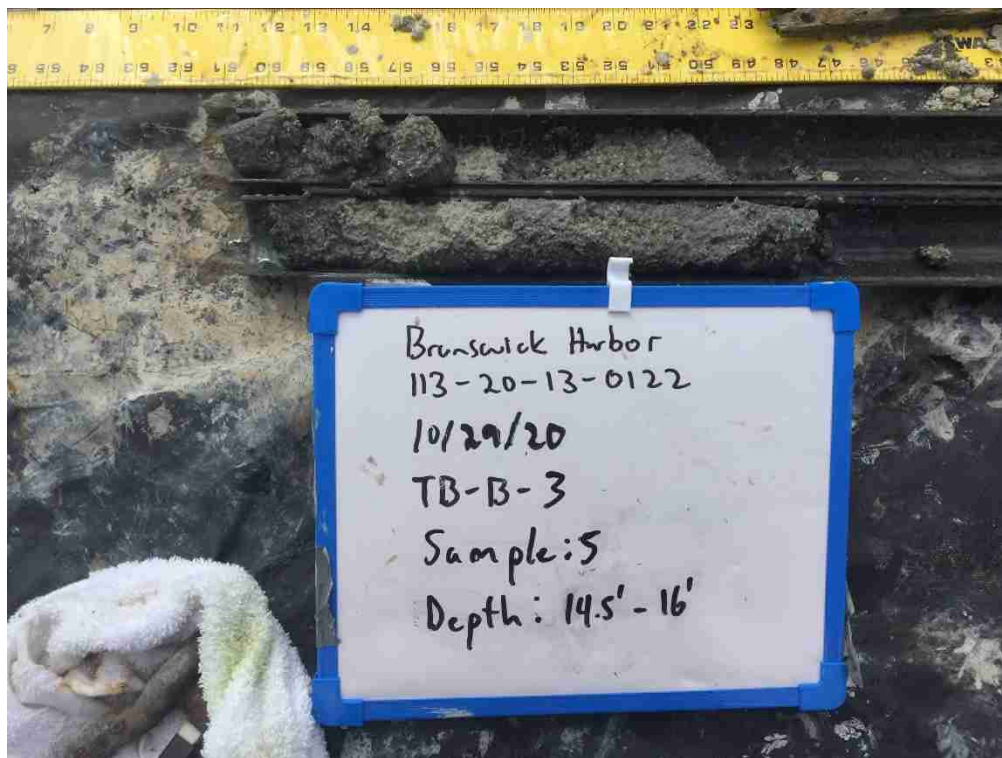 7 8 9 10 11 12 13 14 16 17 18 19 20 21 22 23
WAS
Brunswick Harbor
113-20-13-0122
10/29/20
TB-B-3
Sample: 5
Depth: 14.5' - 16'